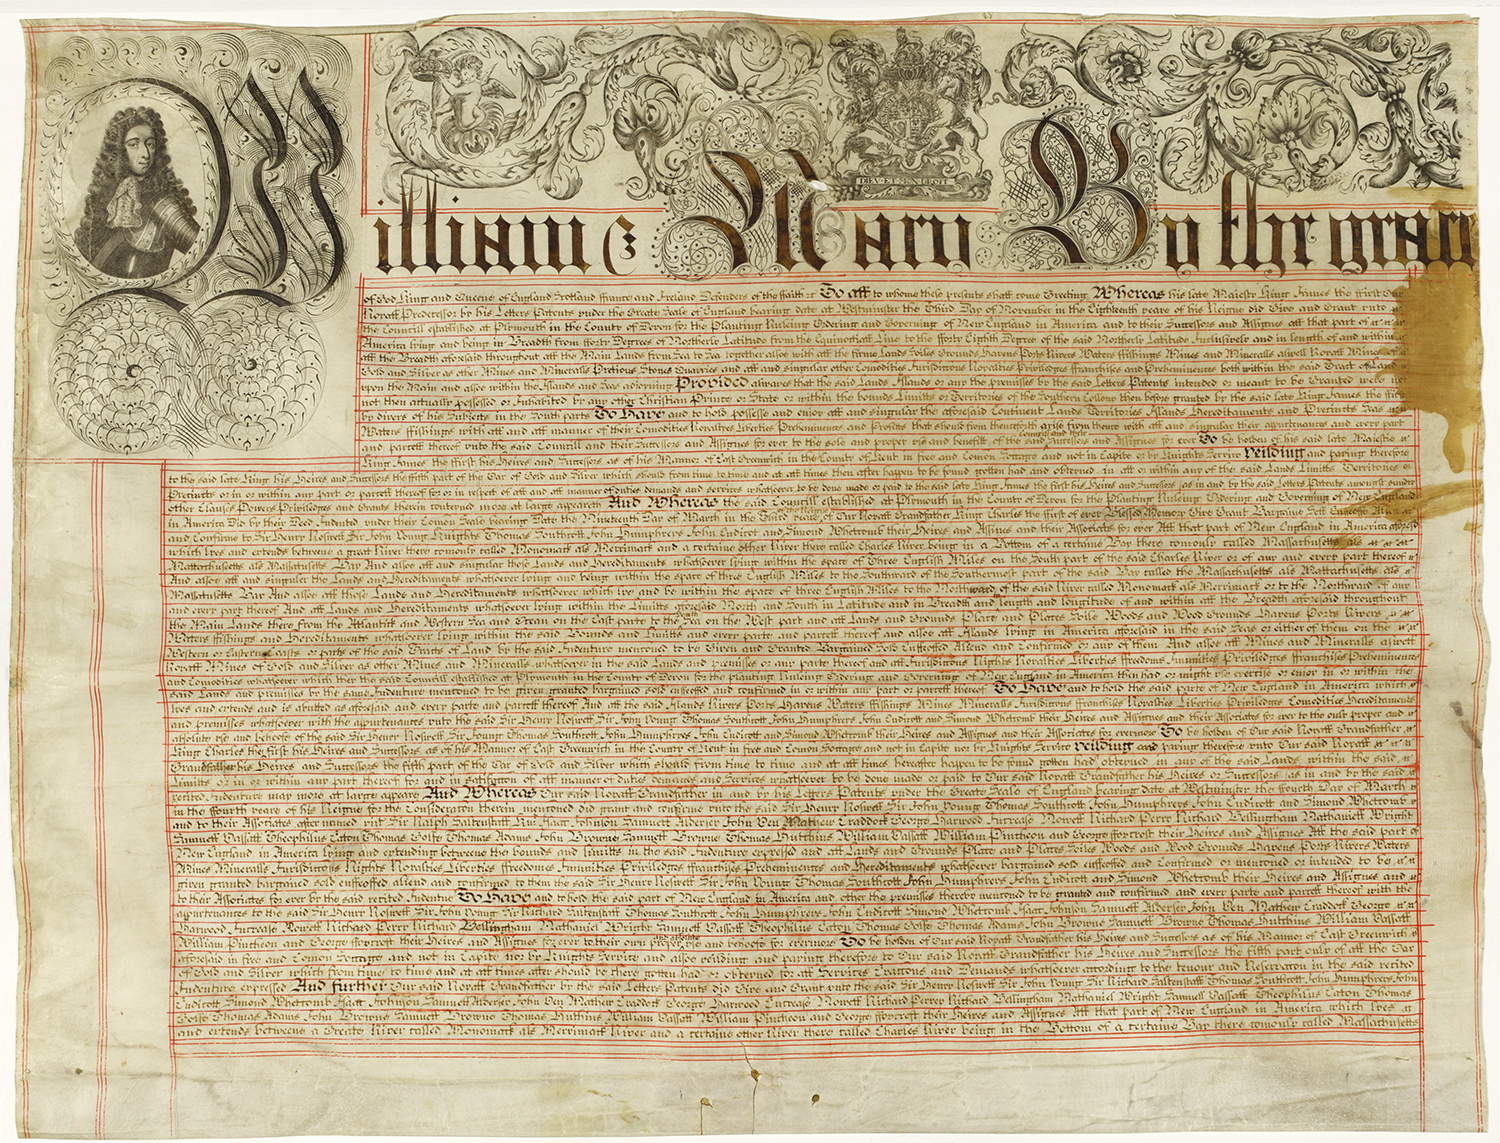 DIEV·ET·MON·DROIT
William & Mary By the grace
of God King and Queene of England Scotland ffrance and Ireland Defenders of the ffaith &c To all to whome these presents shall come Greeting Whereas his late Majesty King James the ffirst Our
Royall Predecessor by his Letters Patents vnder the Greate Seale of England bearing date at Westminster the Third Day of November in the Eighteenth yeare of his Reigne did Give and Grant vnto
the Councill established at Plymouth in the County of Devon for the Planting Ruleing Ordering and Governing of New England in America and to their Successors and Assignes all that part of
America lying and being in Breadth from fforty Degrees of Northerly Latitude from the Equinoctiall Line to the fforty Eighth Degree of the said Northerly Latitude Inclusively and in length of and within
all the Breadth aforesaid throughout all the Main Lands from Sea to Sea together alsoe with all the firme Lands Soiles Grounds Havens Ports Rivers Waters ffishings Mines and Mineralls aswell Royall Mines of
Gold and Silver as other Mines and Mineralls Pretious Stones Quarries and all and singular other Comodities Jurisdiccons Royalties Priviledges ffranchises and Preheminences both within the said Tract of Land
upon the Main and alsoe within the Islands and Seas adjoyning Provided alwayes that the said Lands Islands or any the premises by the said Letters Patents intended or meant to be Granted were not
then actually possessed or Inhabited by any other Christian Prince or State or within the bounds Limitts or Territories of the Southern Collony then before granted by the said late King James the ffirst
by divers of his Subjects in the South parts To Have and to hold possesse and enjoy all and singular the aforesaid Continent Lands Territories Islands Hereditaments and Precincts Seas
Waters ffishings with all and all manner of their Comodities Royalties Liberties Preheminences and Profitts that should from thenceforth arise from thence with all and singular their appurtenances and every part
and parcell thereof vnto the said Councill and their Successors and Assignes for ever to the sole and proper vse and benefitt of the said Councill and their Successors and Assignes for ever To be holden of his said late Majestie
King James the first his Heires and Successors as of his Mannor of East Greenwich in the County of Kent in free and Comon Soccage and not in Capite or by Knights Service Yeilding and paying therefore
to the said late King his Heires and Successors the fifth part of the Oar of Gold and Silver which should from time to time and at all times then after happen to be found gotten had and obteyned in att or within any of the said Lands Limitts Territories or
Precincts or in or within any part or parcell thereof for or in respect of all and all manner of duties demands and services whatsoever to be done made or paid to the said late King James the first his Heires and Successors as in and by the said Letters Patents amongst sundry
other Clauses Powers Priviledges and Grants therein conteyned more at large appeareth And Whereas the said Councill established at Plymouth in the County of Devon for the Planting Ruleing Ordering and Governing of New England
in America Did by their Deed Indented vnder their Comon Seale bearing Date the Nineteenth Day of March in the Third yeare of the Reigne of Our Royall Grandfather King Charles the first of ever Blessed Memory Give Grant Bargaine Sell Enffeoffe Alien
and Confirme to Sir Henry Roswell Sir John Young Knights Thomas Southcott John Humphreys John Endicot and Simond Whetcomb their Heires and Assines and their Associates for ever All that part of New England in America aforesaid
which lyes and extends betweene a great River there comonly called Monomack als Merrimack and a certaine other River there called Charles River being in a Bottom of a certaine Bay there comonly called Massachusetts als
Mattachusetts als Massatusetts Bay And alsoe all and singular those Lands and Hereditaments whatsoever lying within the space of Three English Miles on the South part of the said Charles River or of any and every part thereof
And alsoe all and singular the Lands and Hereditaments whatsoever lying and being within the space of three English Miles to the Southward of the Southermost part of the said Bay called the Massachusetts als Mattachusetts als
Massatusetts Bay And alsoe all those Lands and Hereditaments whatsoever which lye and be within the space of three English Miles to the Northward of the said River called Monomack als Merrimack or to the Northward of any
and every part thereof And all Lands and Hereditaments whatsoever lying within the Limitts aforesaid North and South in Latitude and in Breadth and in length and longitude of and within all the Breadth aforesaid throughout
the Main Lands there from the Atlantick and Western Sea and Ocean on the East parte to the South Sea on the West part and all Lands and Grounds Place and Places Soile Woods and Wood Grounds Havens Ports Rivers
Waters ffishings and Hereditaments whatsoever lying within the said Bounds and limitts and every parte and parcell thereof and alsoe all Islands lying in America aforesaid in the said Seas or either of them on the
Western or Eastern Coasts or parts of the said Tracts of Land by the said Indenture mencioned to be Given and Granted Bargained Sold Enffeoffed Aliened and Confirmed or any of them And alsoe all Mines and Mineralls aswell
Royall Mines of Gold and Silver as other Mines and Mineralls whatsoever in the said Lands and premisses or any parte thereof and all Jurisdiccons Rights Royalties Liberties ffreedoms Imunities Priviledges ffranchises Preheminences
and Comodities whatsoever which they the said Councill established at Plymouth in the County of Devon for the planting Ruleing Ordering and Governing of New England in America then had or might vse exercise or enjoy in or within the
said Lands and premisses by the same Indenture mencioned to be given granted bargained sold enffeoffed and confirmed in or within any part or parcell thereof To Have and to hold the said parte of New England in America which
lyes and extends and is abutted as aforesaid and every parte and parcell thereof And all the said Islands Rivers Ports Havens Waters ffishings Mines Mineralls Jurisdiccons ffranchises Royalties Liberties Priviledges Comodities Hereditaments
and premisses whatsoever with the appurtenances vnto the said Sir Henry Roswell Sir John Young Thomas Southcott John Humphreys John Endicott and Simond Whetcomb their Heires and Assignes and their Associates for ever to the only proper and
absolute vse and behoofe of the said Sir Henry Roswell Sir John Young Thomas Southcott John Humphreys John Endicott and Simond Whetcomb their Heires and Assignes and their Associates for evermore To be holden of Our said Royall Grandfather
King Charles the first his Heires and Successors as of his Mannor of East Greenwich in the County of Kent in free and Comon Soccage and not in Capite nor by Knights Service Yeilding and paying therefore vnto Our said Royall
Grandfather his Heires and Successors the fifth part of the Oar of Gold and Silver which should from time to time and at all times hereafter happen to be found gotten had obteyned in any of the said Lands within the said
Limitts or in or within any part thereof for and in satisfaccon of all manner of duties demands and Services whatsoever to be done made or paid to Our said Royall Grandfather his Heires or Successors as in and by the said
recited Indenture may more at large appeare And Whereas Our said Royall Grandfather in and by his Letters Patents vnder the Greate Seale of England bearing date at Westminster the ffourth Day of March
in the ffourth yeare of his Reigne for the Consideracon therein mencioned did grant and confirme vnto the said Sir Henry Roswell Sir John Young Thomas Southcott John Humphreys John Endicott and Simond Whetcomb
and to their Associates after named vizt Sir Ralph Saltenstall Knt Isaac Johnson Samuell Aldersey John Ven Mathew Craddock George Harwood Increase Nowell Richard Perry Richard Bellingham Nathaniell Wright
Samuell Vassall Theophilus Eaton Thomas Golfe Thomas Adams John Browne Samuell Browne Thomas Hutchins William Vassall William Pincheon and George ffoxcroft their Heires and Assignes All the said part of
New England in America lying and extending betweene the bounds and limitts in the said Indenture expressed and all Lands and Grounds Place and Places Soiles Woods and Wood Grounds Havens Ports Rivers Waters
Mines Mineralls Jurisdiccons Rights Royalties Liberties ffreedomes Imunities Priviledges ffranchises Preheminences and Hereditaments whatsoever bargained sold enffeoffed and Confirmed or mencioned or intended to be
given granted bargained sold enffeoffed aliend and confirmed to them the said Sir Henry Roswell Sir John Young Thomas Southcott John Humphreys John Endicott and Simond Whetcomb their Heires and Assignes and
to their Associates for ever by the said recited Indenture To Have and to hold the said part of New England in America and other the premisses thereby mencioned to be granted and confirmed and every parte and parcell thereof with the
appurtenances to the said Sir Henry Roswell Sir John Young Sir Richard Saltenstall Thomas Southcott John Humphreys John Endicott Simond Whetcomb Isaac Johnson Samuell Aldersey John Ven Mathew Craddock George
Harwood Increase Nowell Richard Perry Richard Bellingham Nathaniel Wright Samuell Vassall Theophilus Eaton Thomas Golfe Thomas Adams John Browne Samuell Browne Thomas Hutchins William Vassall
William Pincheon and George ffoxcroft their Heires and Assignes for ever to their own proper and absolute vse and behoofe for evermore To be holden of Our said Royall Grandfather his Heires and Successors as of his Mannor of East Greenwich
aforesaid in free and Comon Soccage and not in Capite nor by Knights Service and alsoe yeilding and paying therefore to Our said Royall Grandfather his Heires and Successors the fifth part only of all the Oar
of Gold and Silver which from time to time and at all times after should be there gotten had or obteyned for all Services Exaccons and Demands whatsoever according to the tenour and Reservacon in the said recited
Indenture expressed And further Our said Royall Grandfather by the said Letters Patents did Give and Grant vnto the said Sir Henry Roswell Sir John Young Sir Richard Saltenstall Thomas Southcott John Humphreys John
Endicott Simond Whetcomb Isaac Johnson Samuell Aldersey John Ven Mathew Craddock George Harwood Encrease Nowell Richard Perrey Richard Bellingham Nathaniel Wright Samuell Vassall Theophilus Eaton Thomas
Golfe Thomas Adams John Browne Samuell Browne Thomas Hutchins William Vassall William Pincheon and George ffoxcroft their Heires and Assignes All that part of New England in America which lyes
and extends betweene a Greate River called Monomack als Merrimack River and a certaine other River there called Charles River being in the Bottom of a certaine Bay there comonly called Massachusetts